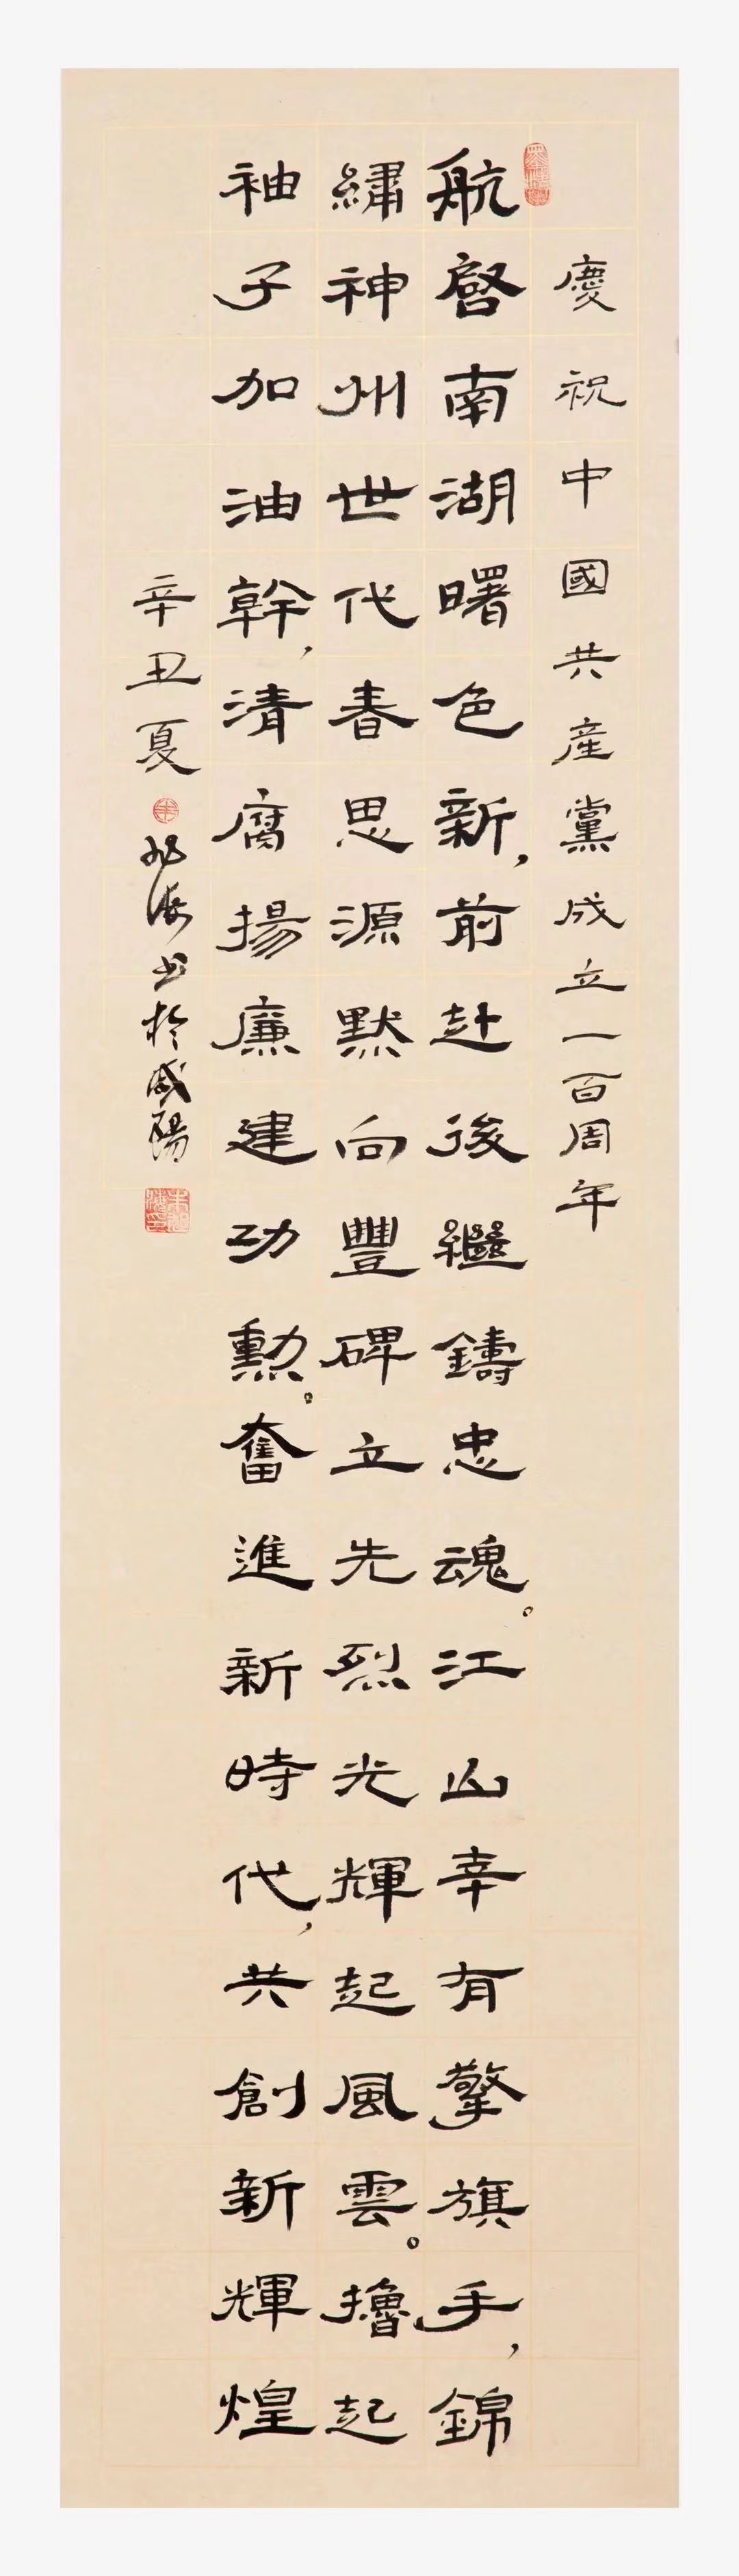 慶祝中國共産黨成立一百周年
航啓南湖曙色新，前赴後繼鑄忠魂。江山幸有擎旗手，錦
繡神州世代春思源默向豐碑立先烈光輝起風雲。擼起
袖子加油幹，清腐揚廉建功勳。奮進新時代，共創新輝煌
辛丑夏 书於咸陽